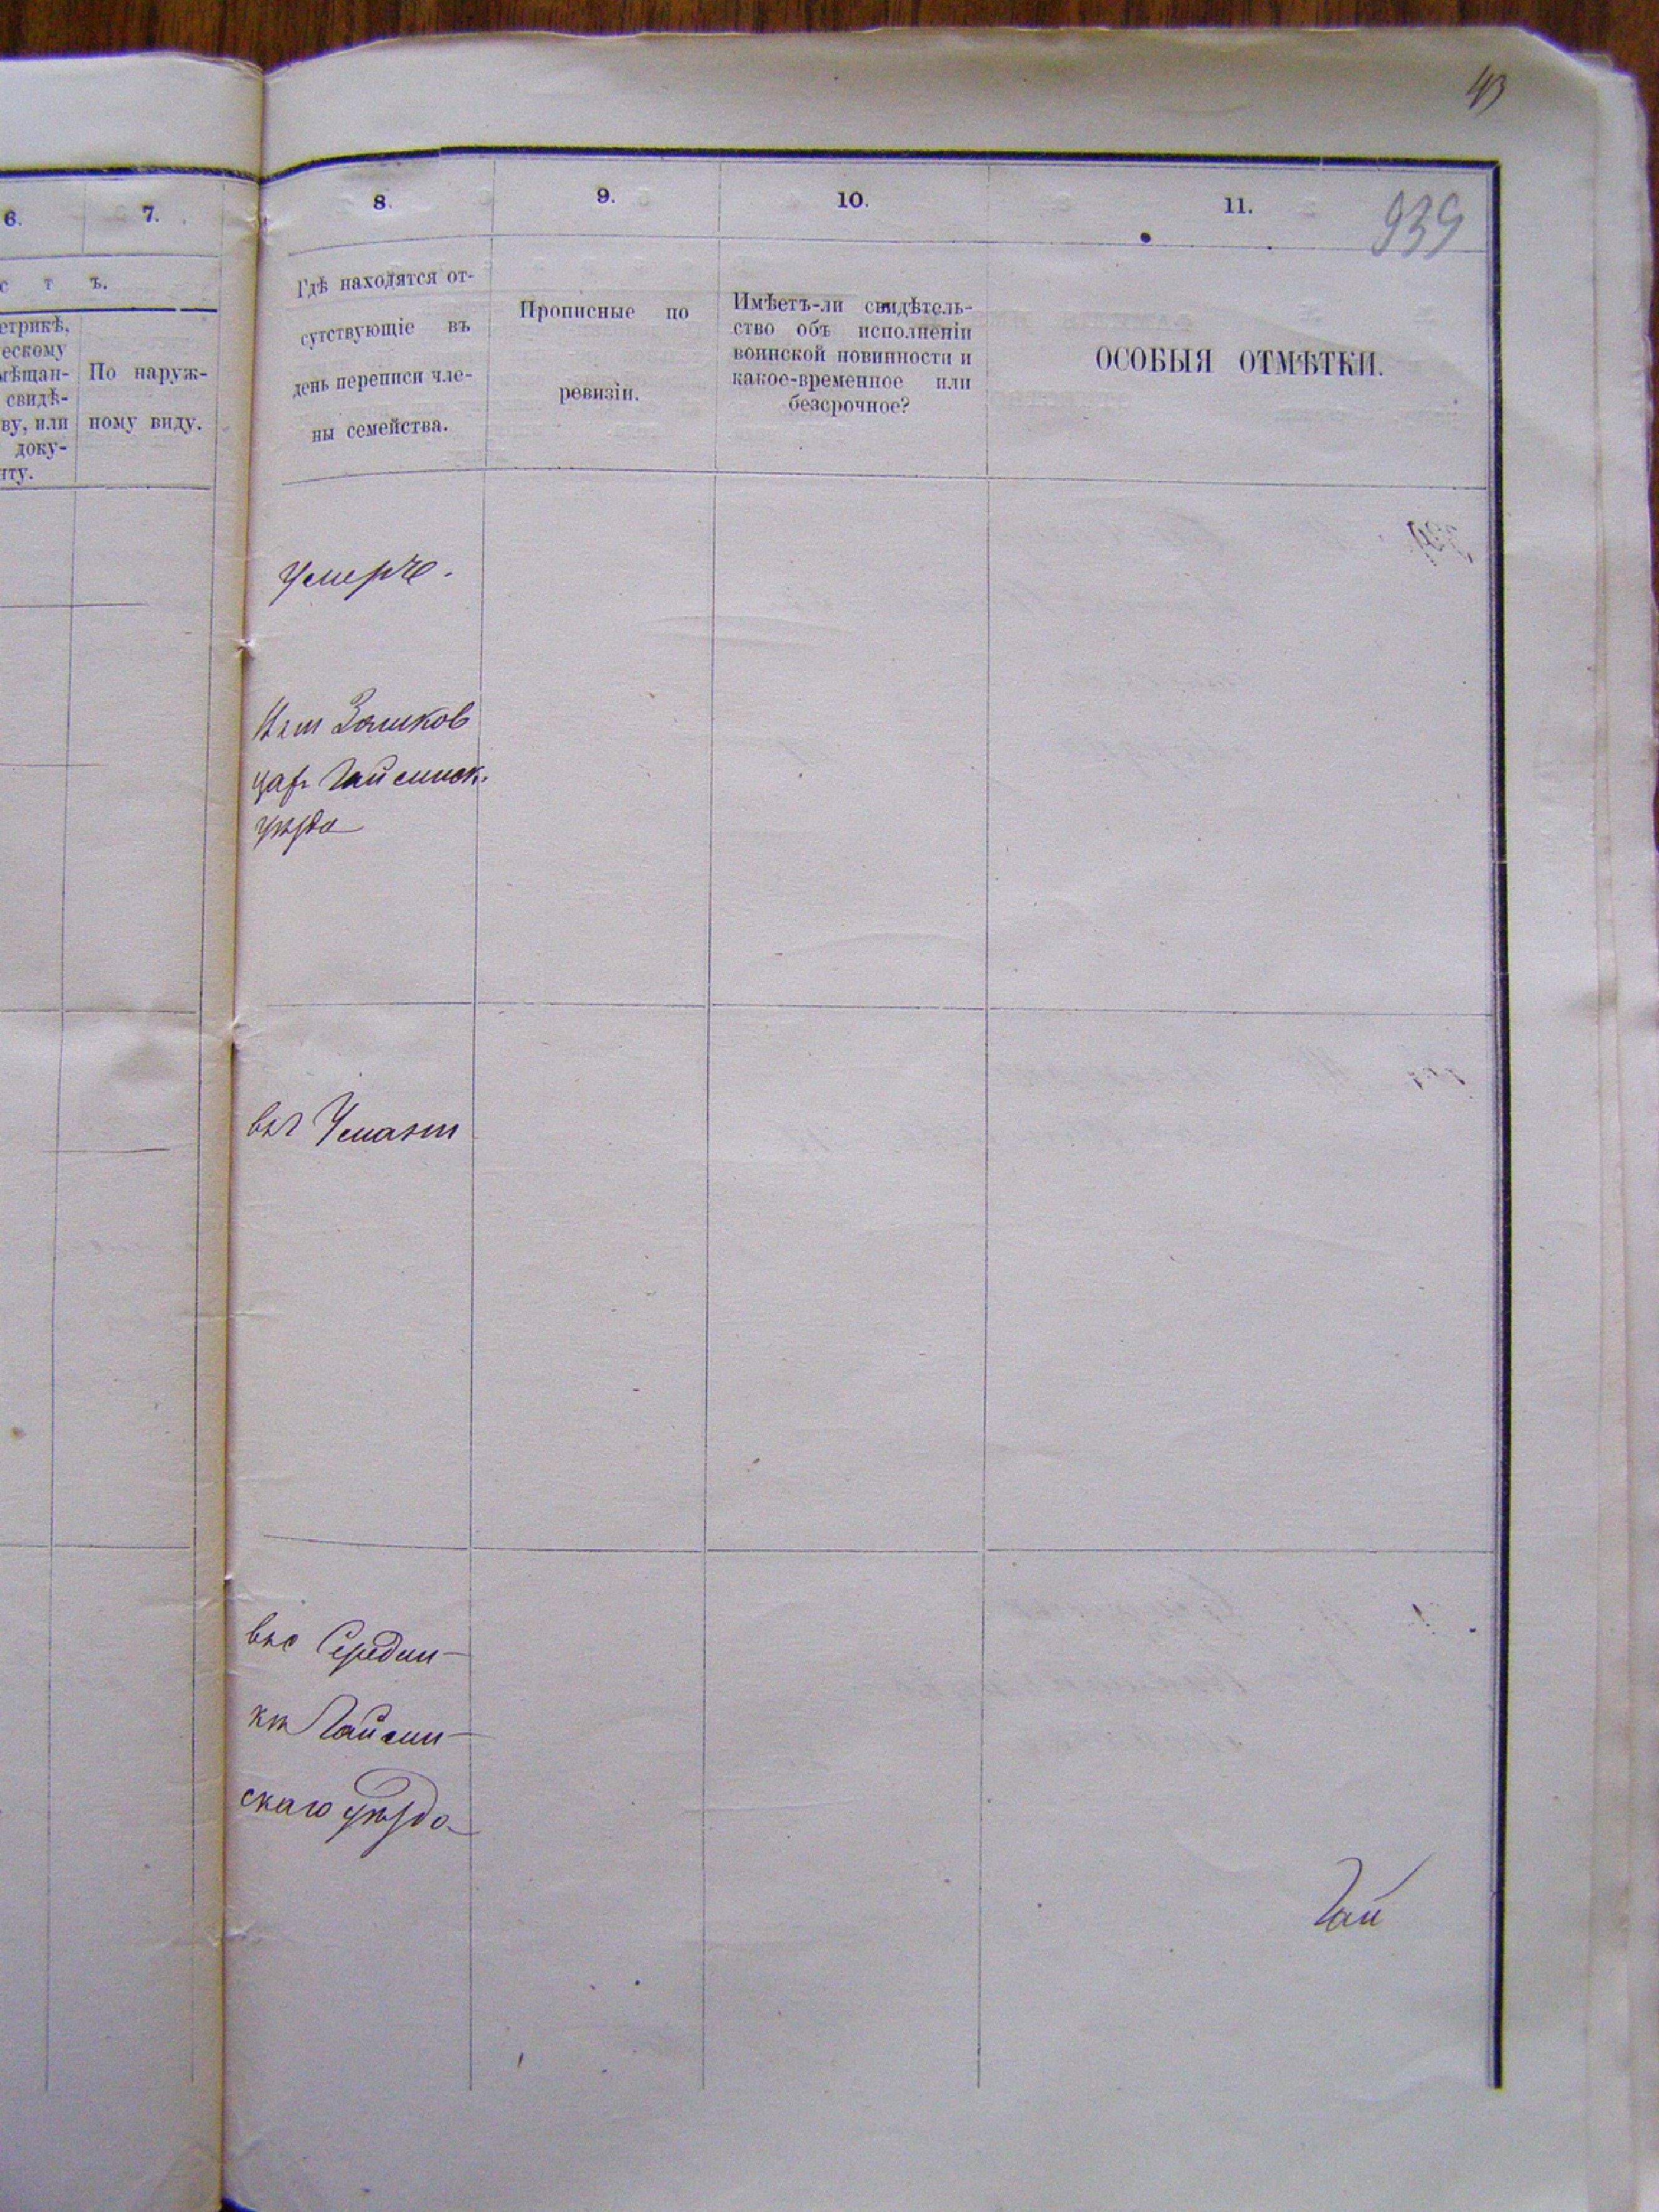 43
939
6.
7.
8.
9.
10.
11.
с т ъ.
етрикѣ,
ескому
мѣщан-
свидѣ-
ву, или
доку-
нту.
По наруж-
ному виду.
Гдѣ находятся от-
сутствующіе въ
день переписи чле-
ны семейства.
Прописные по
ревизіи.
Имѣетъ-ли свидѣтель-
ство объ исполненіи
воинской повинности и
какое-временное или
безсрочное?
ОСОБЫЯ ОТМѢТКИ.
умеръ.
Гайсинск.
уѣзда
въ г Умани
въ с Середин-
кѣ Гайсин-
скаго уѣзда
Гай